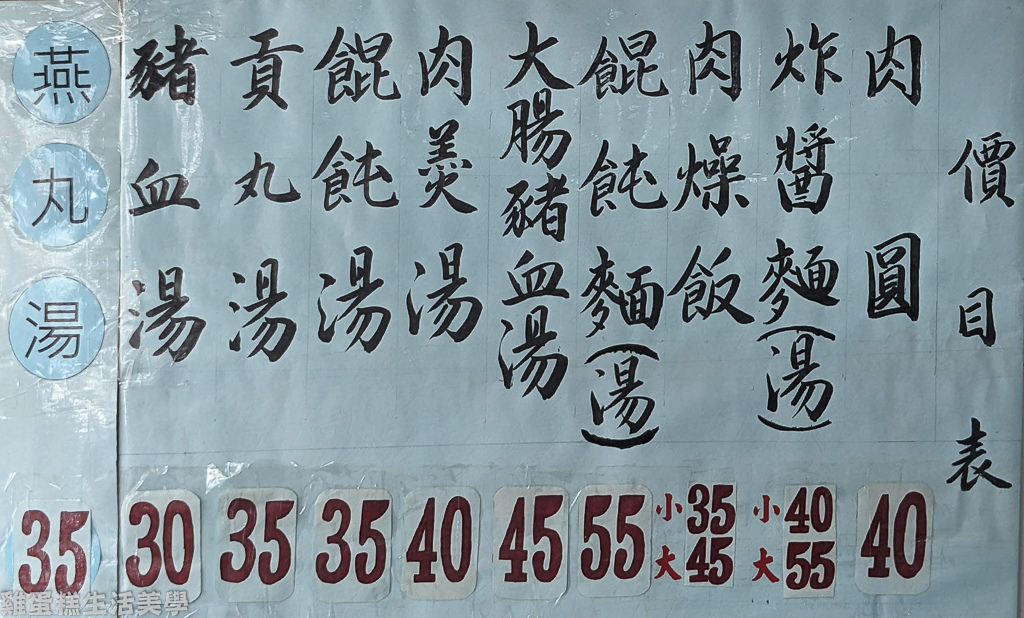 價目表
肉圓 40
炸醬麵(湯) 小40 大55
肉燥飯 小35 大45
餛飩麵(湯) 55
大腸豬血湯 45
肉羹湯 40
餛飩湯 35
貢丸湯 35
豬血湯 30
燕丸湯 35
雞蛋糕生活美學